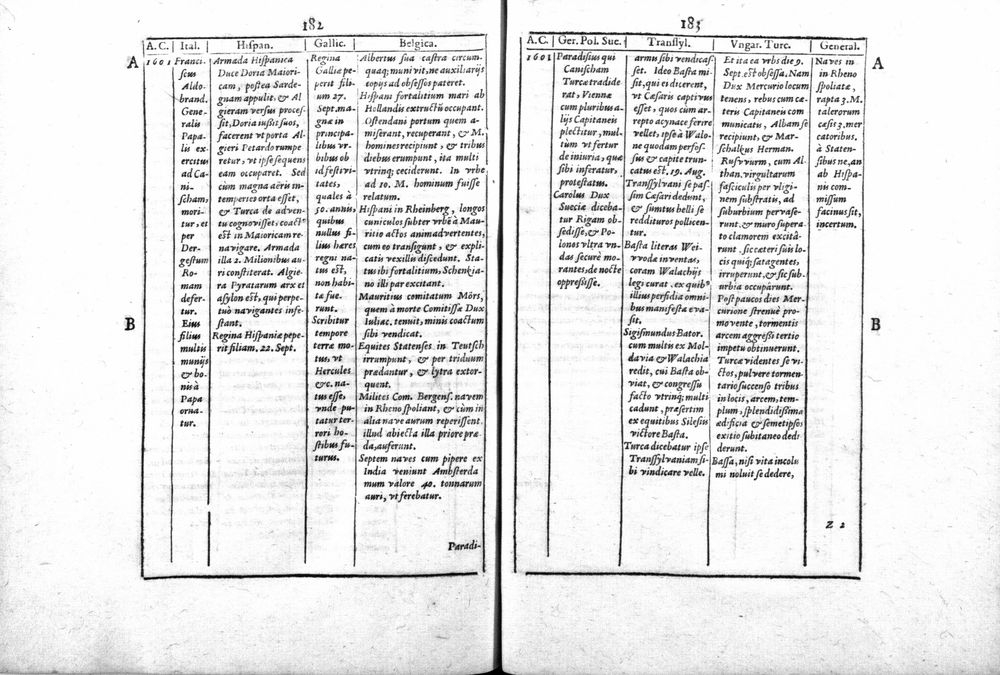 182
A. C. | Ital. | Hispan. | Gallic. | Belgica.
A
B
1601
Franci-
scus
Aldo-
brand.
Gene-
ralis
Papa-
lis ex-
ercitus
ad Ca-
ni-
scham,
mori-
tur, et
per
Der-
gestum
Ro-
mam
defer-
tur.
Eius
filius
multis
munijs
& bo-
nis à
Papa
orna-
tur.
Armada Hispanica
Duce Doria Maiori-
cam, postea Sarde-
gnam appulit, & Al
gieram versus proces-
sit, Doria iussit suos,
facerent vt porta Al-
gieri Petardo rumpe
retur, vt ipse sequens
eam occuparet. Sed
cùm magna aëris in-
temperies orta esset,
& Turca de aduen-
tu cognovisset, coact9
est in Maioricam re-
navigare. Armada
illa 2. Milionibus au-
ri constiterat. Algie-
ra Pyratarum arx et
asylon est, qui perpe-
tuò navigantes infe-
stant.
Regina Hispaniæ pepe-
rit filiam. 22. Sept.
Regina
Galliæ pe-
perit fili-
um 27.
Sept. ma-
gna in
principa-
libus vr-
bibus ob
id festivi-
tates,
quales à
50. annis,
quibus
nullus fi-
lius hæres
regni na-
tus est,
non habi-
tæ sue.
runt.
Scribitur
tempore
terræ mo-
tus, vt
Hercules
&c. na-
tus esse,
vnde pu-
tatur ter-
rori ho-
stibus fu-
turus.
Albertus sua castra circum-
quaq; munivit, ne auxiliarijs
copijs ad obsessos pateret.
Hispani fortalitium mari ab
Hollandis extructũ occupant.
Ostendani portum quem a-
miserant, recuperant, & M.
homines recipiunt, & tribus
diebus erumpunt, ita multi
vtrinq; ceciderunt. In vrbe
ad 10. M. hominum fuisse
relatum.
Hispani in Rheinberg, longos
cuniculos subter vrbẽ à Mau-
ritio actos animadvertentes,
cum eo transigunt, & expli-
catis vexillis discedunt. Sta-
tus ibi fortalitium, Schenkia-
no illi par excitant.
Mauritius comitatum Mörs,
quem à morte Comitissæ Dux
Iuliac. tenuit, minis coactum
sibi vendicat.
Equites Statenses in Teutsch
irrumpunt, & per triduum
prædantur, & lytra extor-
quent.
Milites Com. Bergens. navem
in Rheno spoliant, & cùm in
alia nave aurum reperissent.
illud abiecta illa priore præ-
da, auferunt.
Septem naves cum pipere ex
India veniunt Ambsterda
mum valore 40. tonnarum
auri, vt ferebatur.
Paradi-
183
A. C. | Ger. Pol. Sue. | Transsyl. | Vngar. Turc. | General.
A
B
1601
Paradisius qui
Canischam
Turcæ tradide
rat, Viennæ
cum pluribus a-
lijs Capitaneis
plectitur, mul-
tum vt fertur
de iniuria, quæ
sibi inferatur,
protestatus.
Carolus Dux
Sueciæ diceba-
tur Rigam ob-
sedisse, & Po-
lonos vltra vn-
das securè mo-
rantes, de nocte
oppressisse.
armis sibi vendicas
set. Ideo Basta mi-
sit, qui ei dicerent,
vt Cæsaris captivus
esset, quos cùm ar-
repto acynace ferire
vellet, ipse à Walo-
ne quodam perfos-
sus & capite trun-
catus est, 19. Aug.
Transsylvani se pas-
sim Cæsari dedunt,
& sumtus belli se
reddituros pollicen-
tur.
Basta literas Wei-
vvodæ inventas,
coram Walachijs
legi curat, ex quib9
illius perfidia omni-
bus manifesta eva-
sit.
Sigismundus Bator.
cum multis ex Mol-
davia & Walachia
redit, cui Basta ob-
viat, & congressu
facto vtrinq; multi
cadunt, præsertim
ex equitibus Silesiis
victore Basta.
Turca dicebatur ipse
Transsylvaniam si-
bi vindicare velle.
Et ita ea vrbs die 9.
Sept. est obsessa. Nam
Dux Mercurio locum
tenens, rebus cum cæ-
teris Capitaneis cõ-
municatis, Albam se
recipiunt, & Mar-
schalkus Herman.
Rusvvurm, cum Al-
than. virgultarum
fasciculis per vligi-
nem substratis, ad
suburbium pervase-
runt. & muro supera-
to clamorem excitâ-
runt. sicæteri suis lo-
cis quiq; satagentes,
irruperunt, & sic sub-
urbia occupârunt.
Post paucos dies Mer-
curione strenuè pro-
movente, tormentis
arcem aggressi tertio
impetu obtinuerunt.
Turcæ videntes se vi-
ctos, pulvere tormen-
tario succenso tribus
in locis, arcem, tem-
plum, splendidissima
ædificia & semetipsos
exitio subitaneo dedi
derunt.
Bassa, nisi vita incolu
mi noluit se dedere,
Naves in
in Rheno
spoliatæ,
rapta 3. M.
talerorum
cæsit 3. mer
catoribus.
à Staten-
sibus ne, an
ab Hispa-
nis com-
missum
facinus sit,
incertum.
Z 2